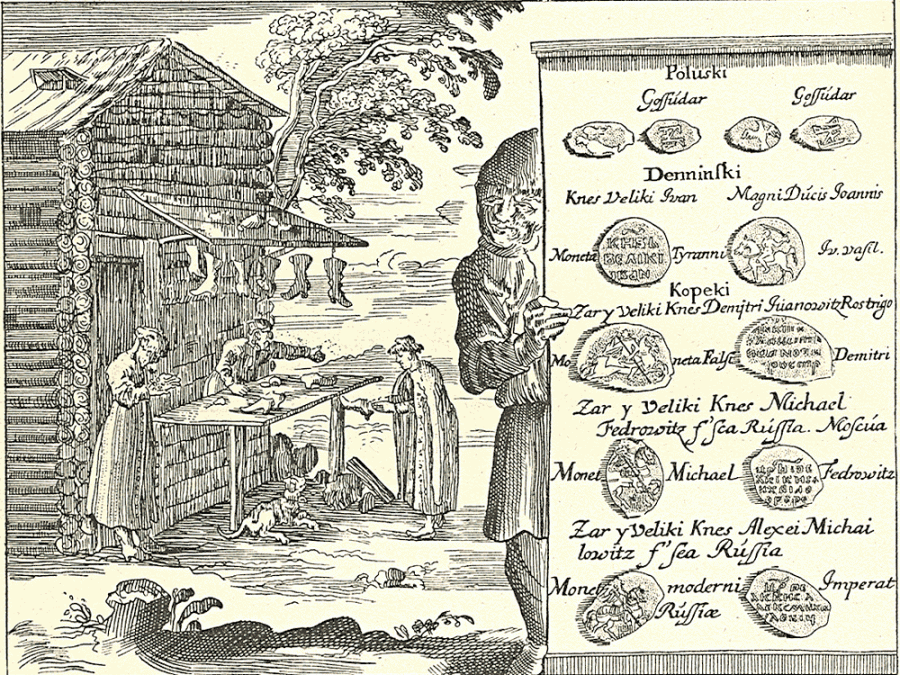 Poluski
Gossúdar Gossúdar
Denninski
Knes Veliki Ivan Magni Dúcis Ioannis
Moneta Tyranni Iv. vasil.
КНЯЗЬ
ВЕЛІКІ
ІВАН
Kopeki
Zar y Veliki Knes Demjtri Iúanowitz Rostrigo
Mo neta Falsa Demitri
Zar y Veliki Knes Michael
Fedrowitz f'sea Rússla. Moscúa
Monet Michael Fedrowitz
Zar y Veliki Knes Alexei Michai
lowitz f'sea Rússia
Monet moderni Imperat
Rússiæ